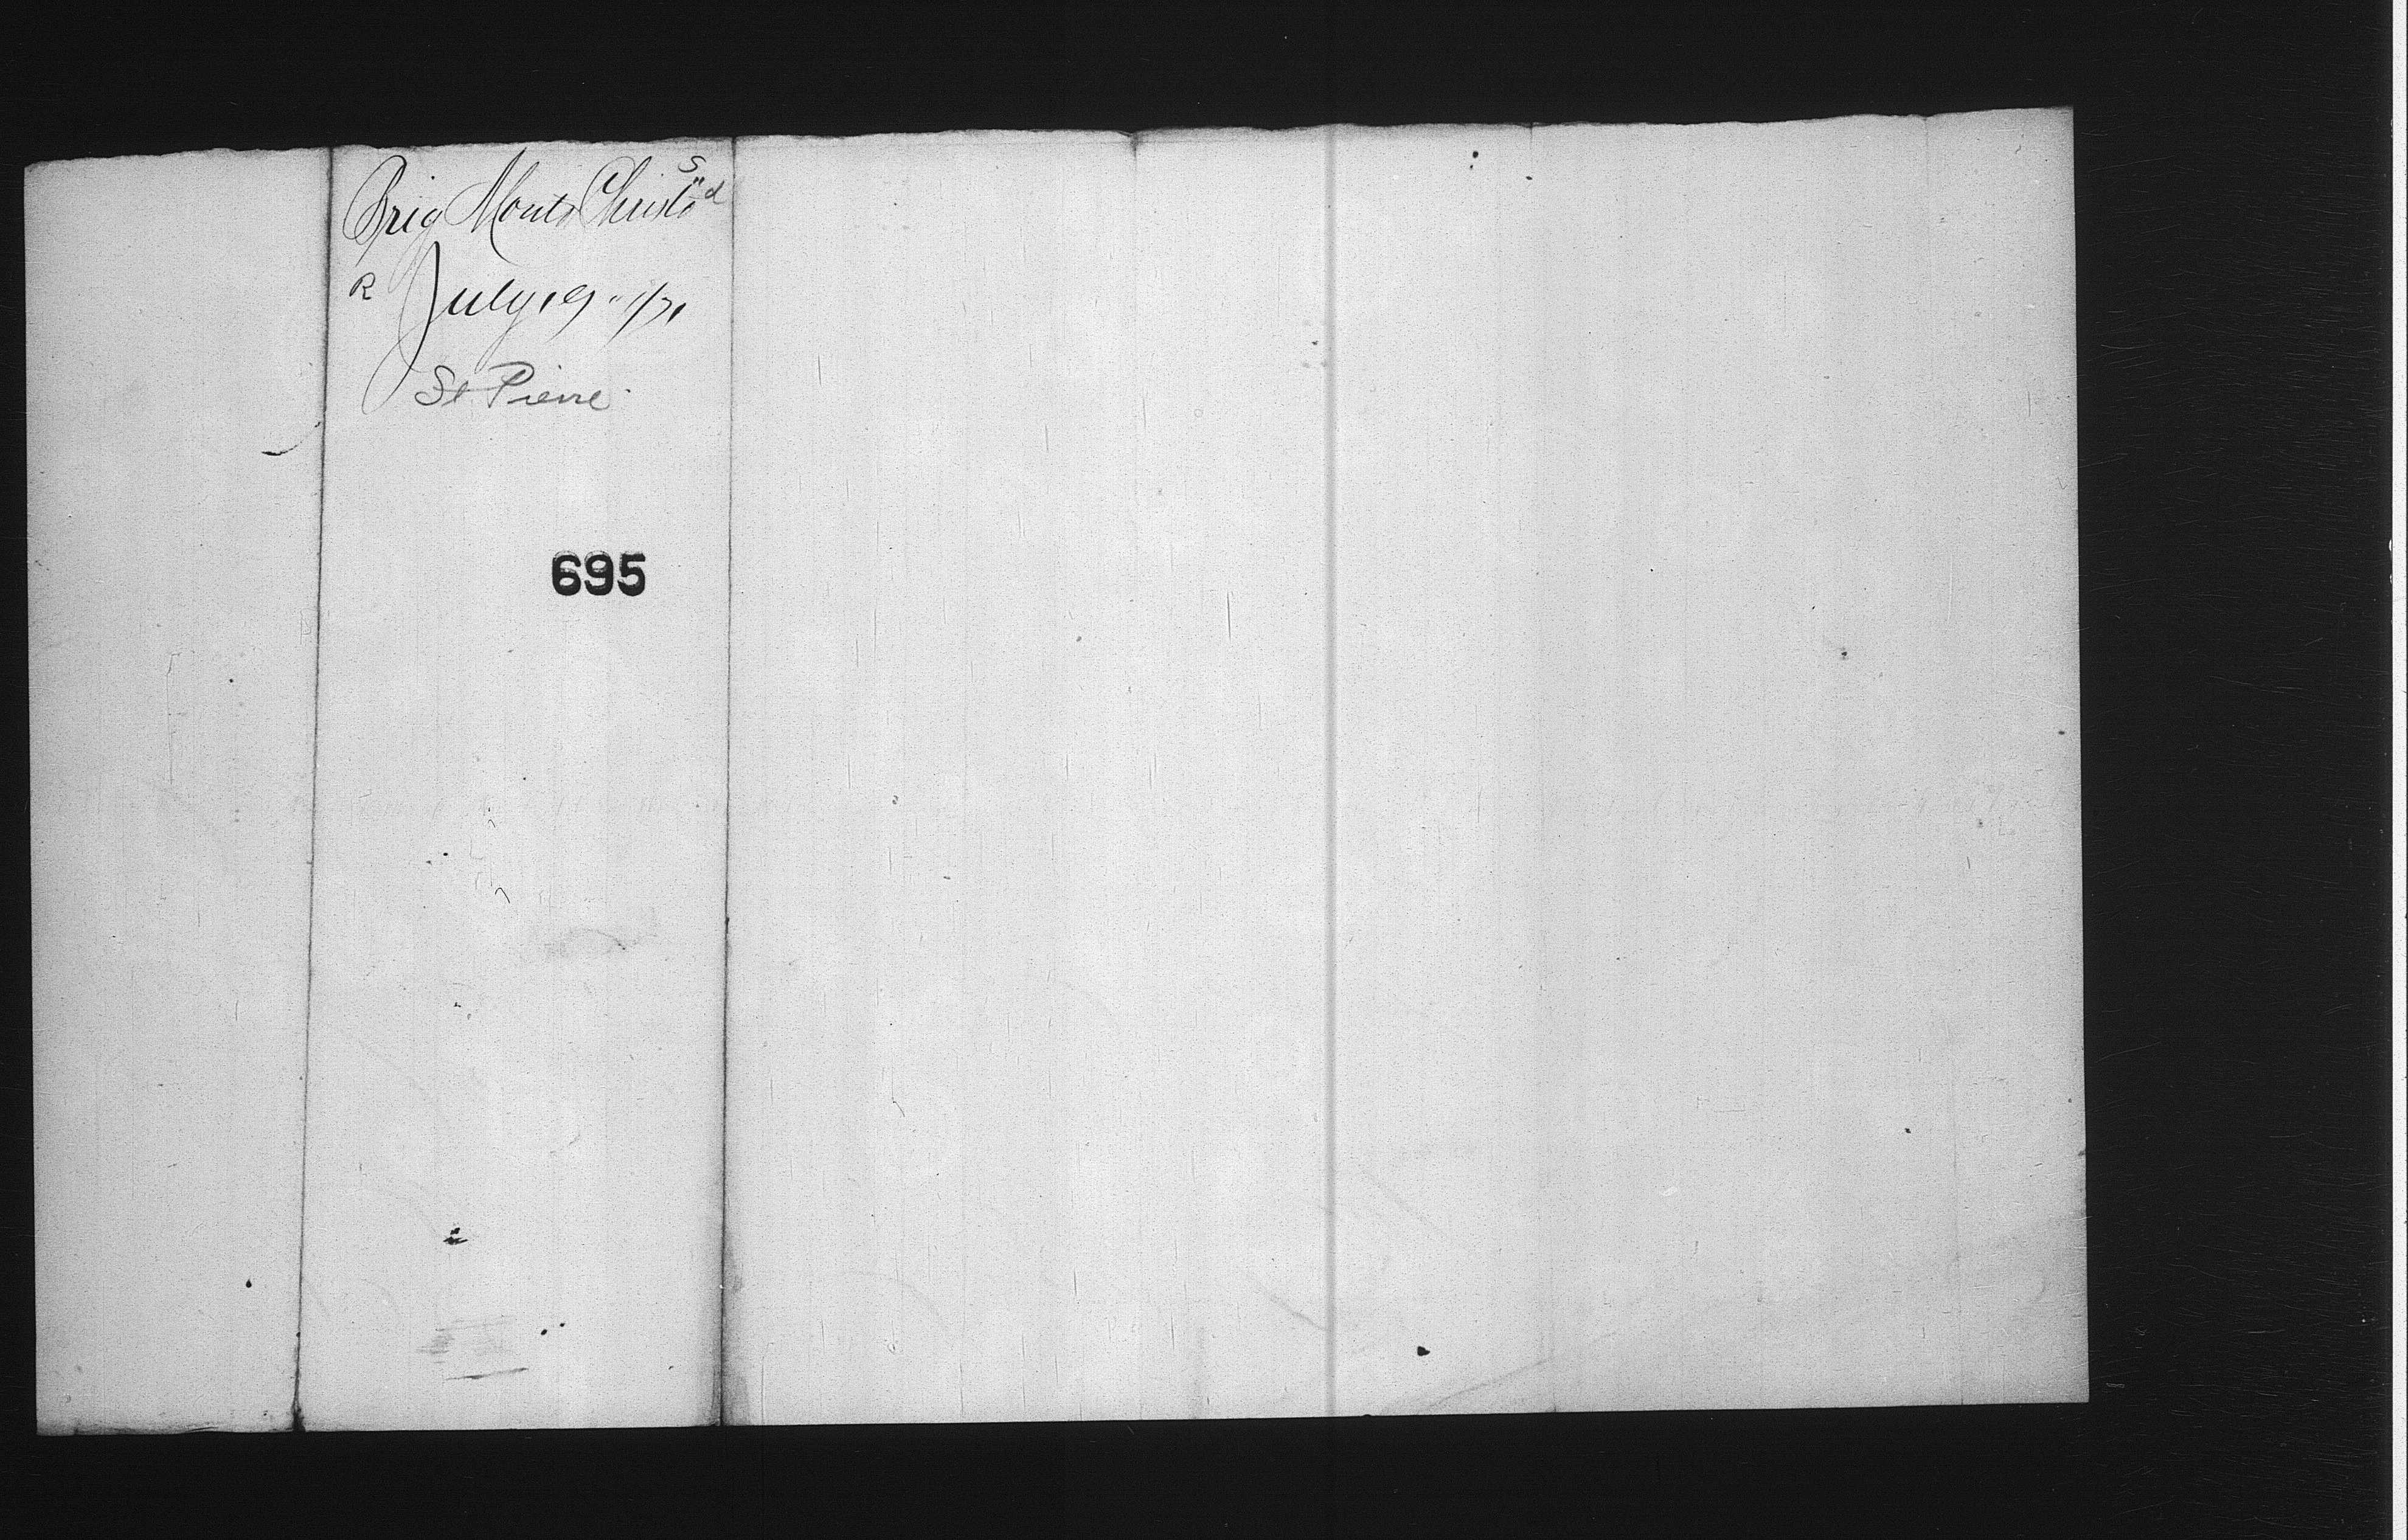 Brig Monte Christo S"d
R July 19" 1/71
St Pierre
695